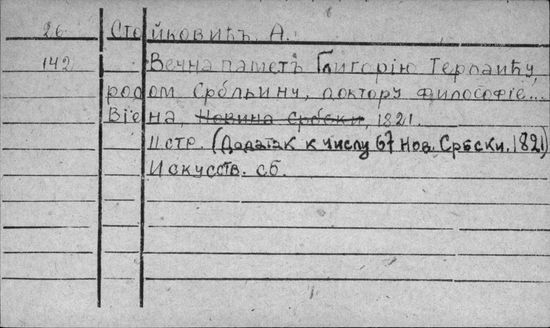 26 Стойковичъ, А.
142 Вечна паметъ Глигорію Терлаићу,
родом Србльину, доктору философіе...
Віена, Новина Србски, 1821.
11 стр. (Додатак к числу 67 Нов. Србски. 1821)
Искусств. сб.